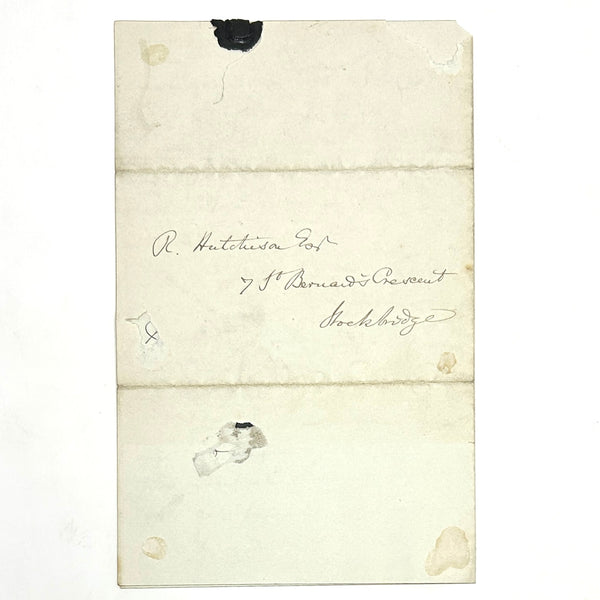 R. Hutchison Esqr
7 St Bernard's Crescent
Stockbridge